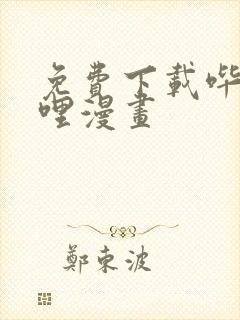 免費下載哔
哩漫畫
鄭東波